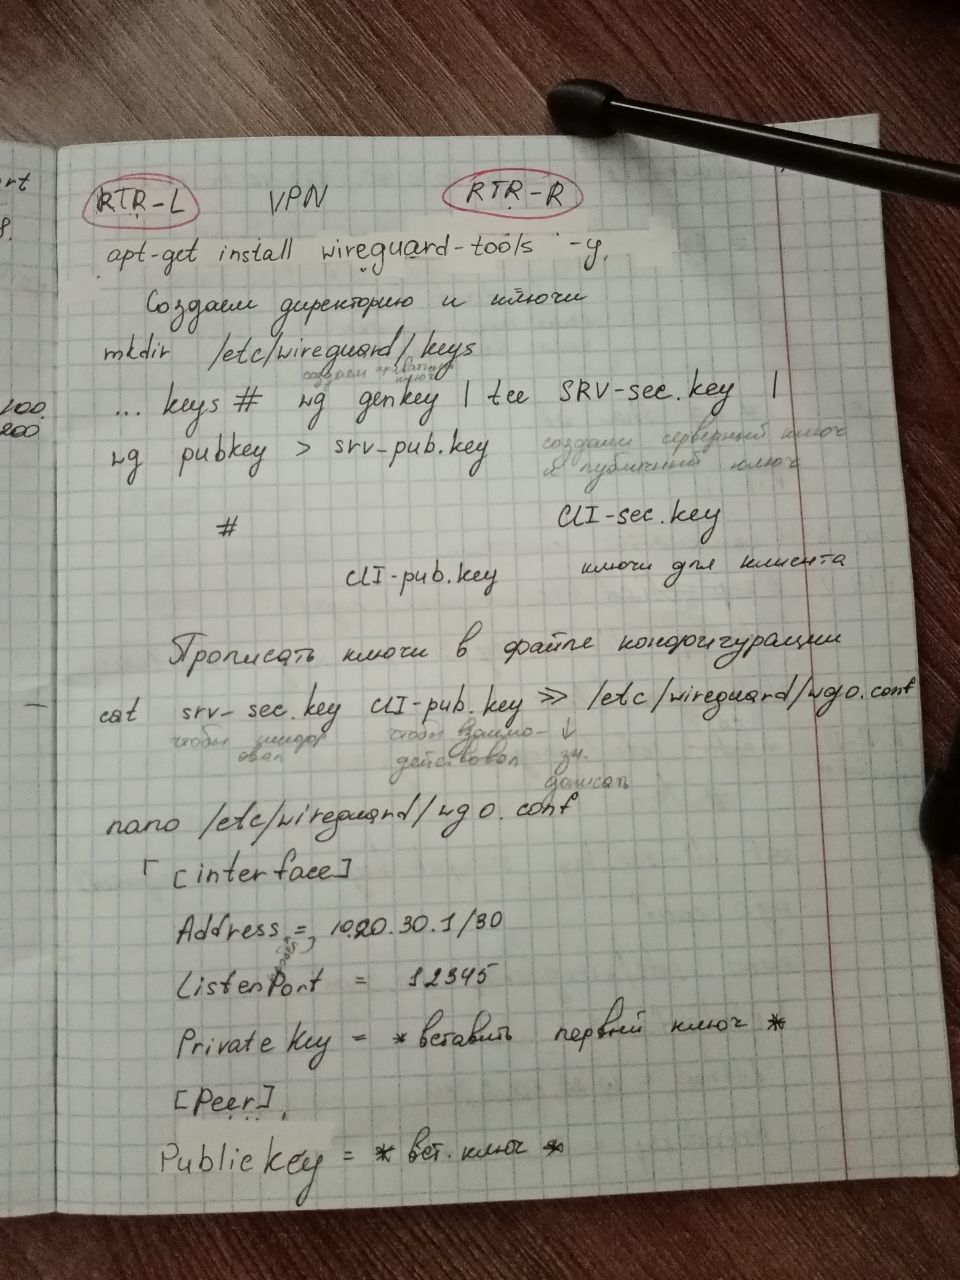 RTR-L VPN RTR-R
apt-get install wireguard-tools -y
Создаем директорию и ключи
mkdir /etc/wireguard/keys
создаем приватный ключ
... keys # wg genkey | tee SRV-sec.key |
wg pubkey > srv-pub.key
создаем серверный ключ
и публичный ключ
# CLI-sec.key
CLI-pub.key ключи для клиента
Прописать ключи в файле конфигурации
cat srv-sec.key CLI-pub.key >> /etc/wireguard/wg0.conf
чтобы чтобы взаимо- ↓
действовал зн.
дописать
nano /etc/wireguard/wg0.conf
[interface]
Address = 10.20.30.1/30
пробел
ListenPort = 12345
Private key = * вставить первый ключ *
[Peer]
Public key = * вст. ключ *
ort
8.
100.
200